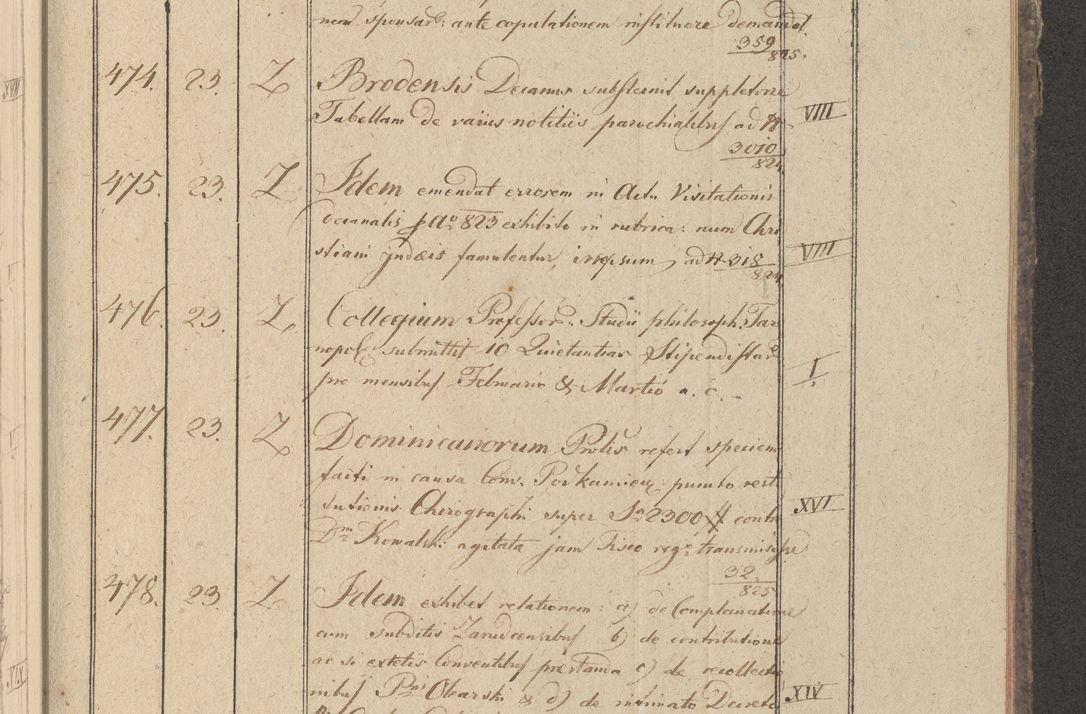 nem sponsar: ante copulationem instituere demandat.
359
825.
474. 23. Z Brodensis Decanus substernit suppletorie
Tabellam de variis notitiis parochialibus ad N
VIII
3010
824
475. 23. Z Idem emendat errorem in Actu Visitationis
decanalis p Ao 823 exhibito in rubrica: num Chri
stiani Judæis famulentur, irrepsum, ad N 318
824
VIII
476. 23. Z, Collegium Professor. Studii philosoph. Tar
nopol submittit 10 Quietantias Stipendistar
pro mensibus Februario & Martio a. c. -
I
477. 23. Z Dominicanorum Prolis refert speciem
facti in causa Conv. Podkamien puncto resti
tutionis Chirographi super Sa 2300 contra
XVI
Dm Kowalski agitata jam Fisco reg. transmisisse
32
825
478. 23. Z Idem exhibet relationem: a) de Complanatione
cum subditis b) de contributione
ac si extetis Conventibus præstanda c) de recollecti
nibus Pni Olearski & d) de intimato Decreto
XIV